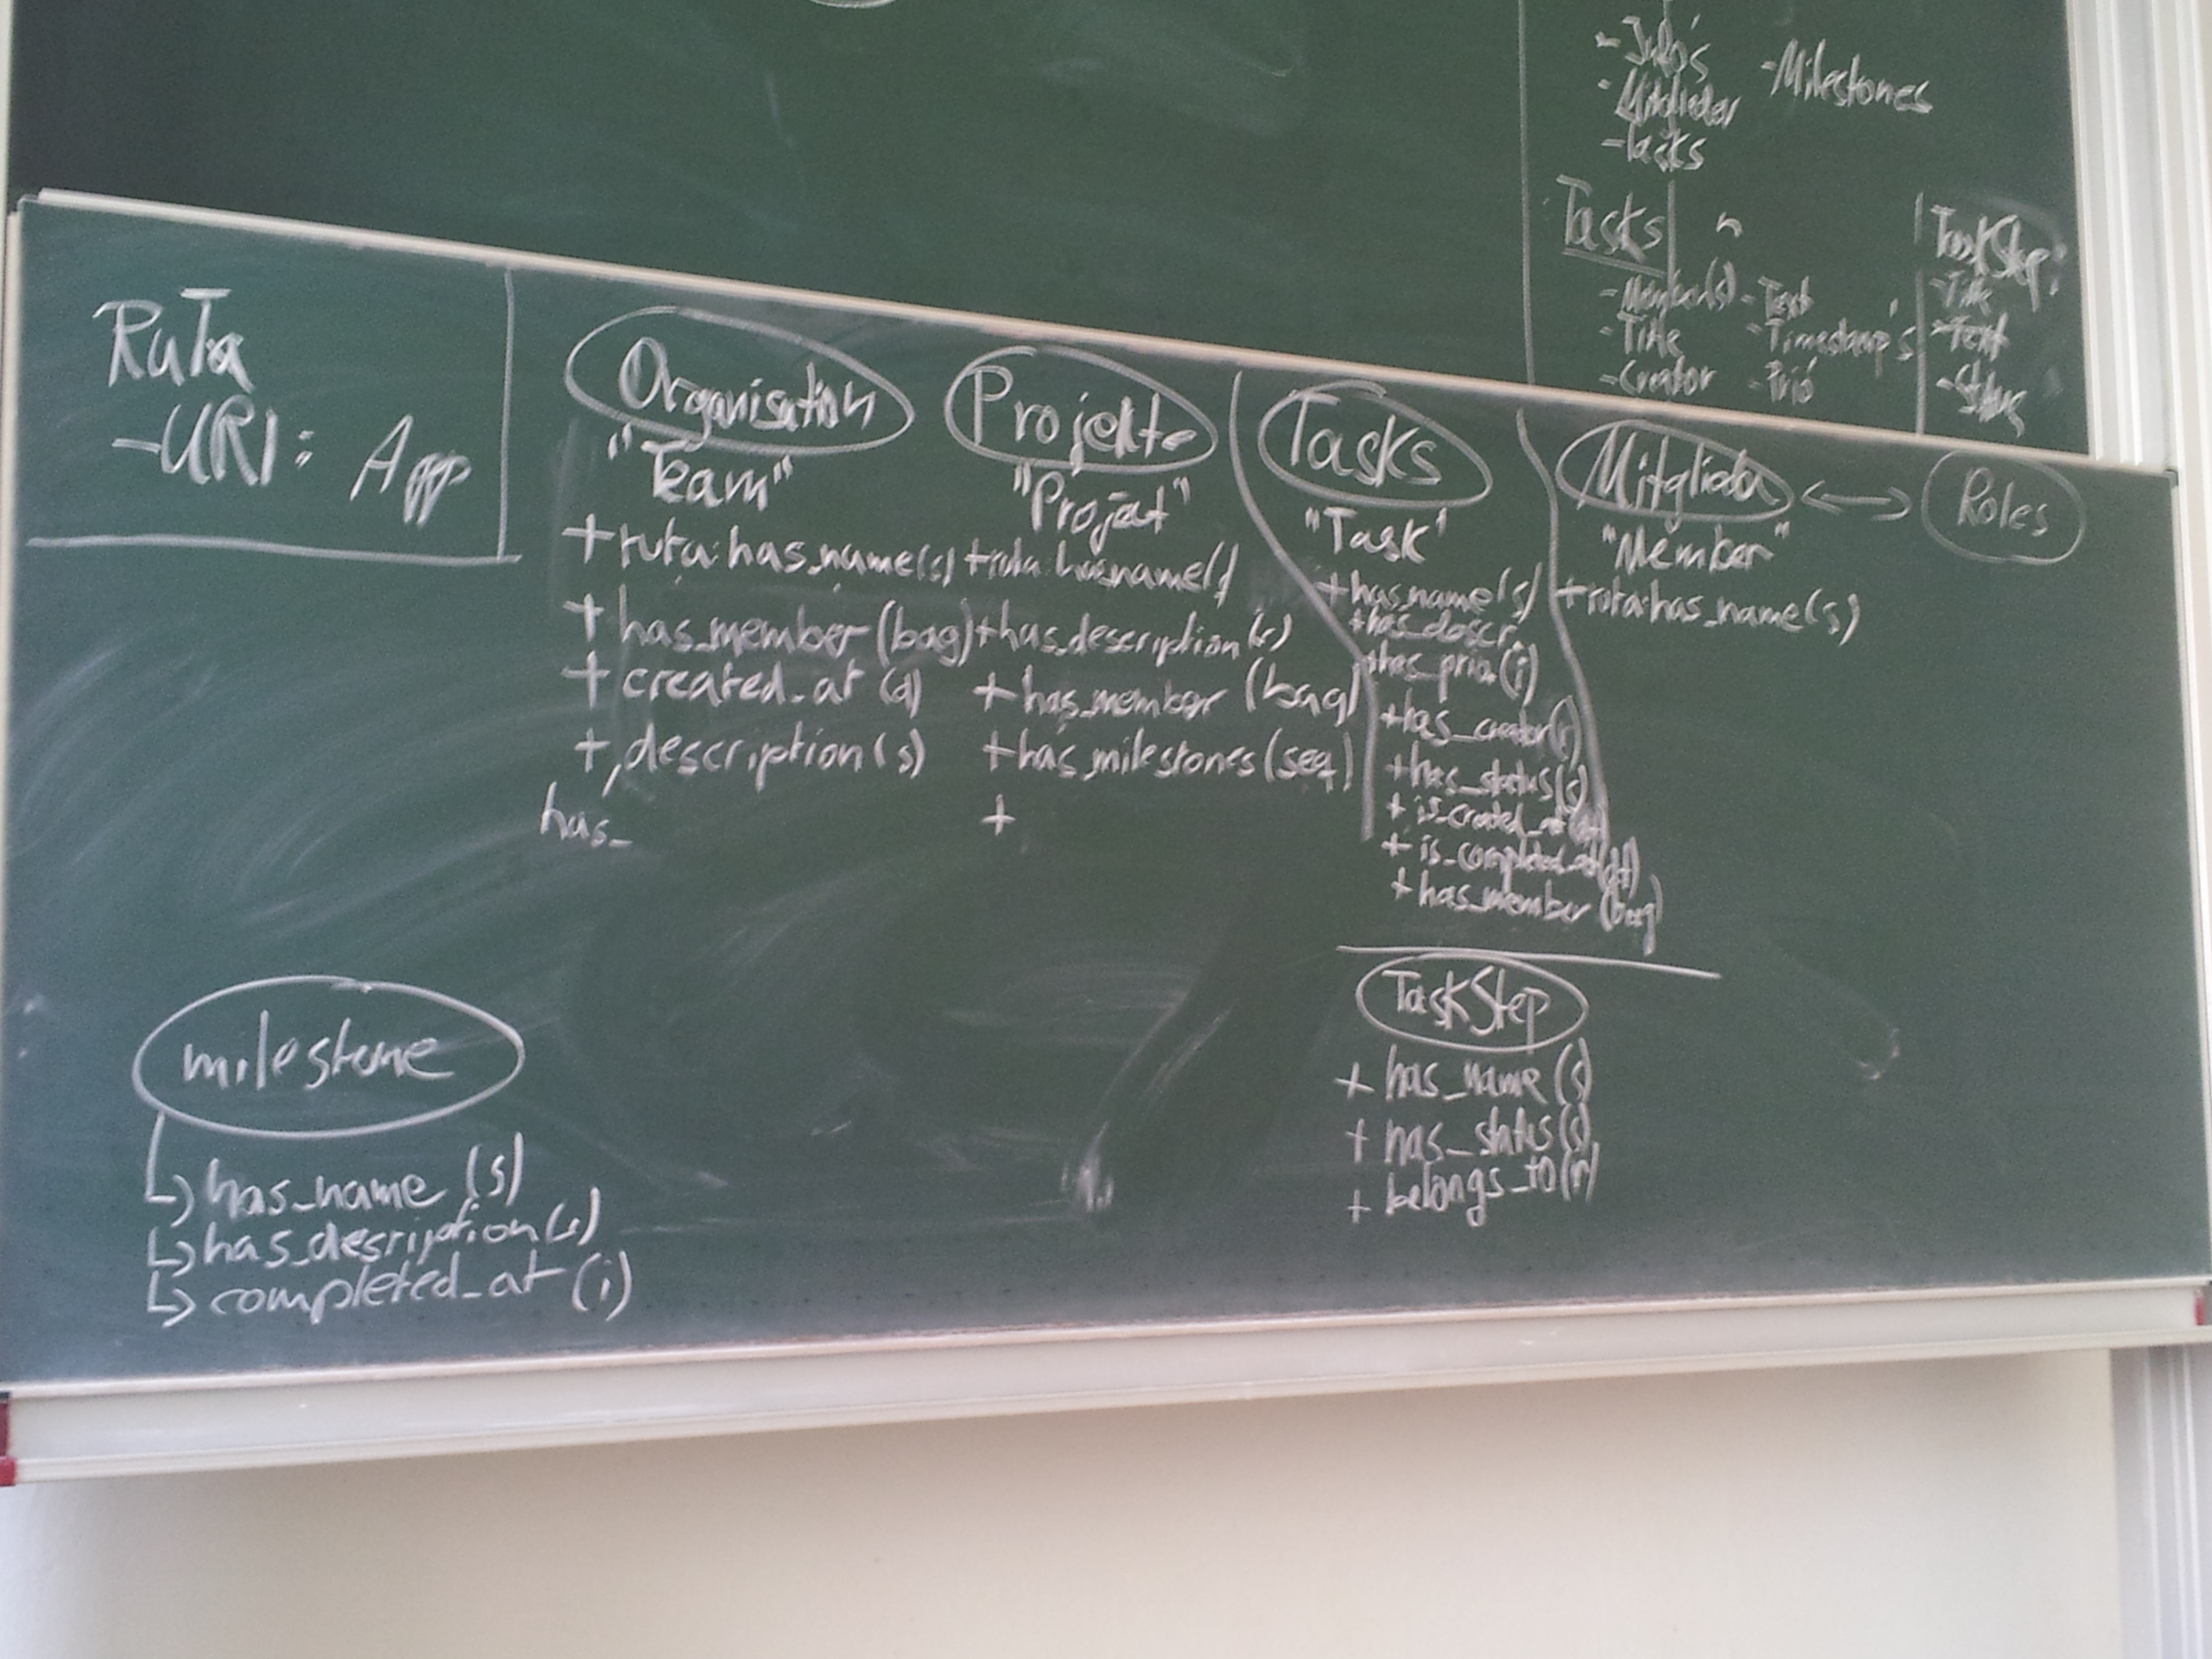 - Info's
- Mitglieder
- Tasks
- Milestones
Tasks
- Member(s)
- Title
- Creator
- Text
- Timestamp's
- Prio
TaskStep:
- Title
- Text
- Status
RuTa
- URI: App
Organisation
"Team"
+ ruta:has_name(s)
+ has_member (bag)
+ created_at (d)
+ description(s)
has_
Projekte
"Projeat"
+ruta:has_name(
+has_description(s)
+ has_member (bag)
+has_milestones (seq)
+
Tasks
"Task"
+has_name(s)
+has_descr.
+has_prio(i)
+has_creator(r)
+has_status(s)
+ is_created_at
+ is_completed_at(dt)
+ has_member (bag)
Mitglieder
"Member"
+ruta:has_name(s)
Roles
TaskStep
+ has_name (s)
+ has_status(s)
+ belongs_to(r)
milestone
has_name (s)
has_desription(s)
completed_at (i)